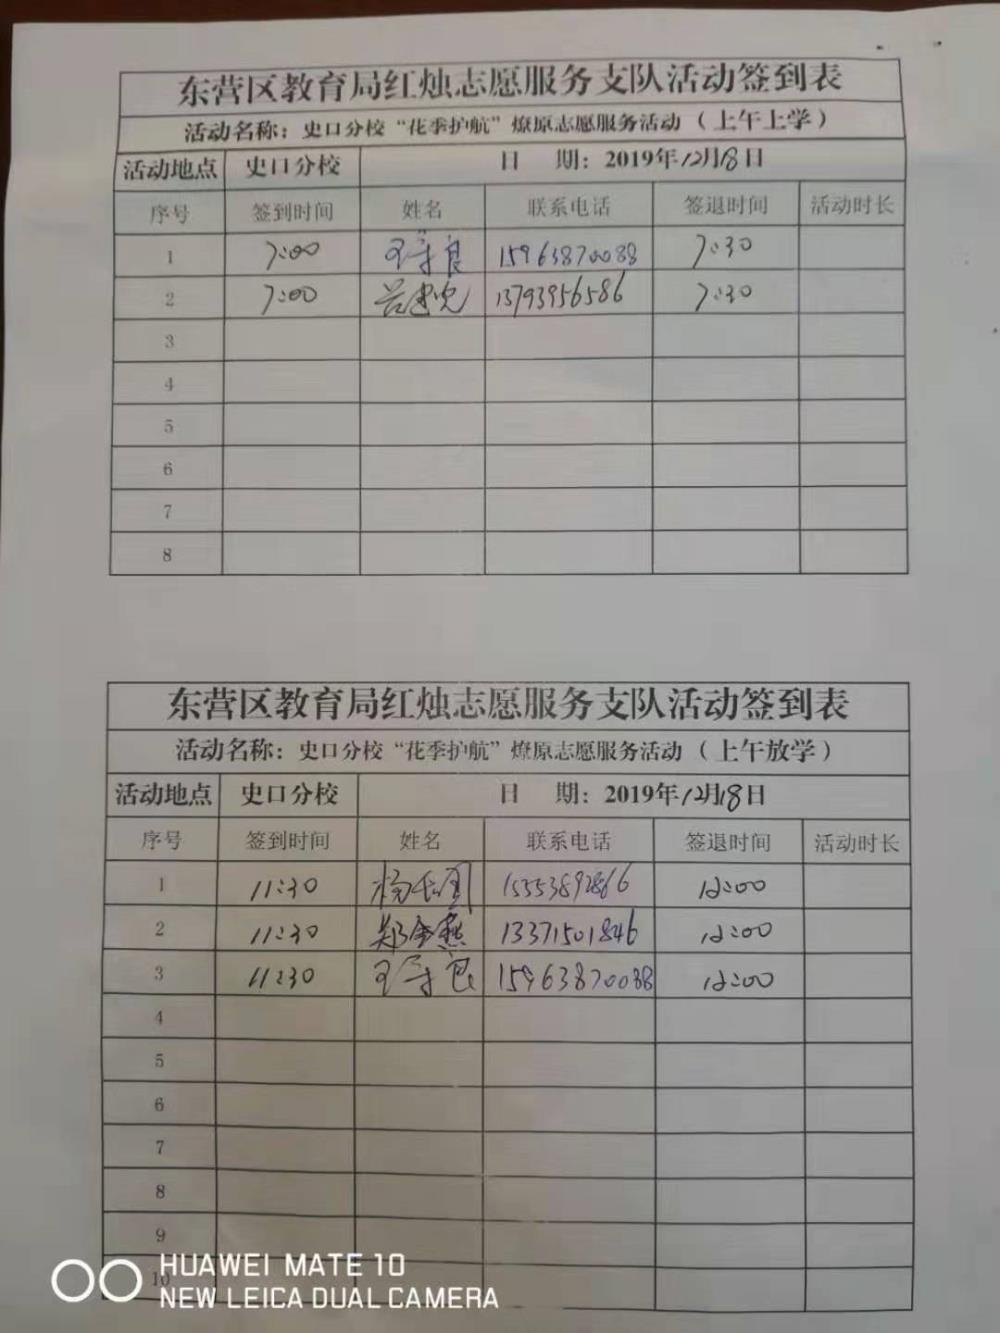 东营区教育局红烛志愿服务支队活动签到表
活动名称：史口分校“花季护航”燎原志愿服务活动（上午上学）
活动地点 史口分校 日 期：2019年12月18日
序号 签到时间 姓名 联系电话 签退时间 活动时长
1 7:00 王守良 15963870088 7:30
2 7:00 13793956586 7:30
3
4
5
6
7
8
东营区教育局红烛志愿服务支队活动签到表
活动名称：史口分校“花季护航”燎原志愿服务活动（上午放学）
活动地点 史口分校 日 期：2019年12月18日
序号 签到时间 姓名 联系电话 签退时间 活动时长
1 11:30 杨长国 15553892866 12:00
2 11:30 郑金燕 13371501846 12:00
3 11:30 王守良 15963870088 12:00
4
5
6
7
8
9
10
HUAWEI MATE 10
NEW LEICA DUAL CAMERA